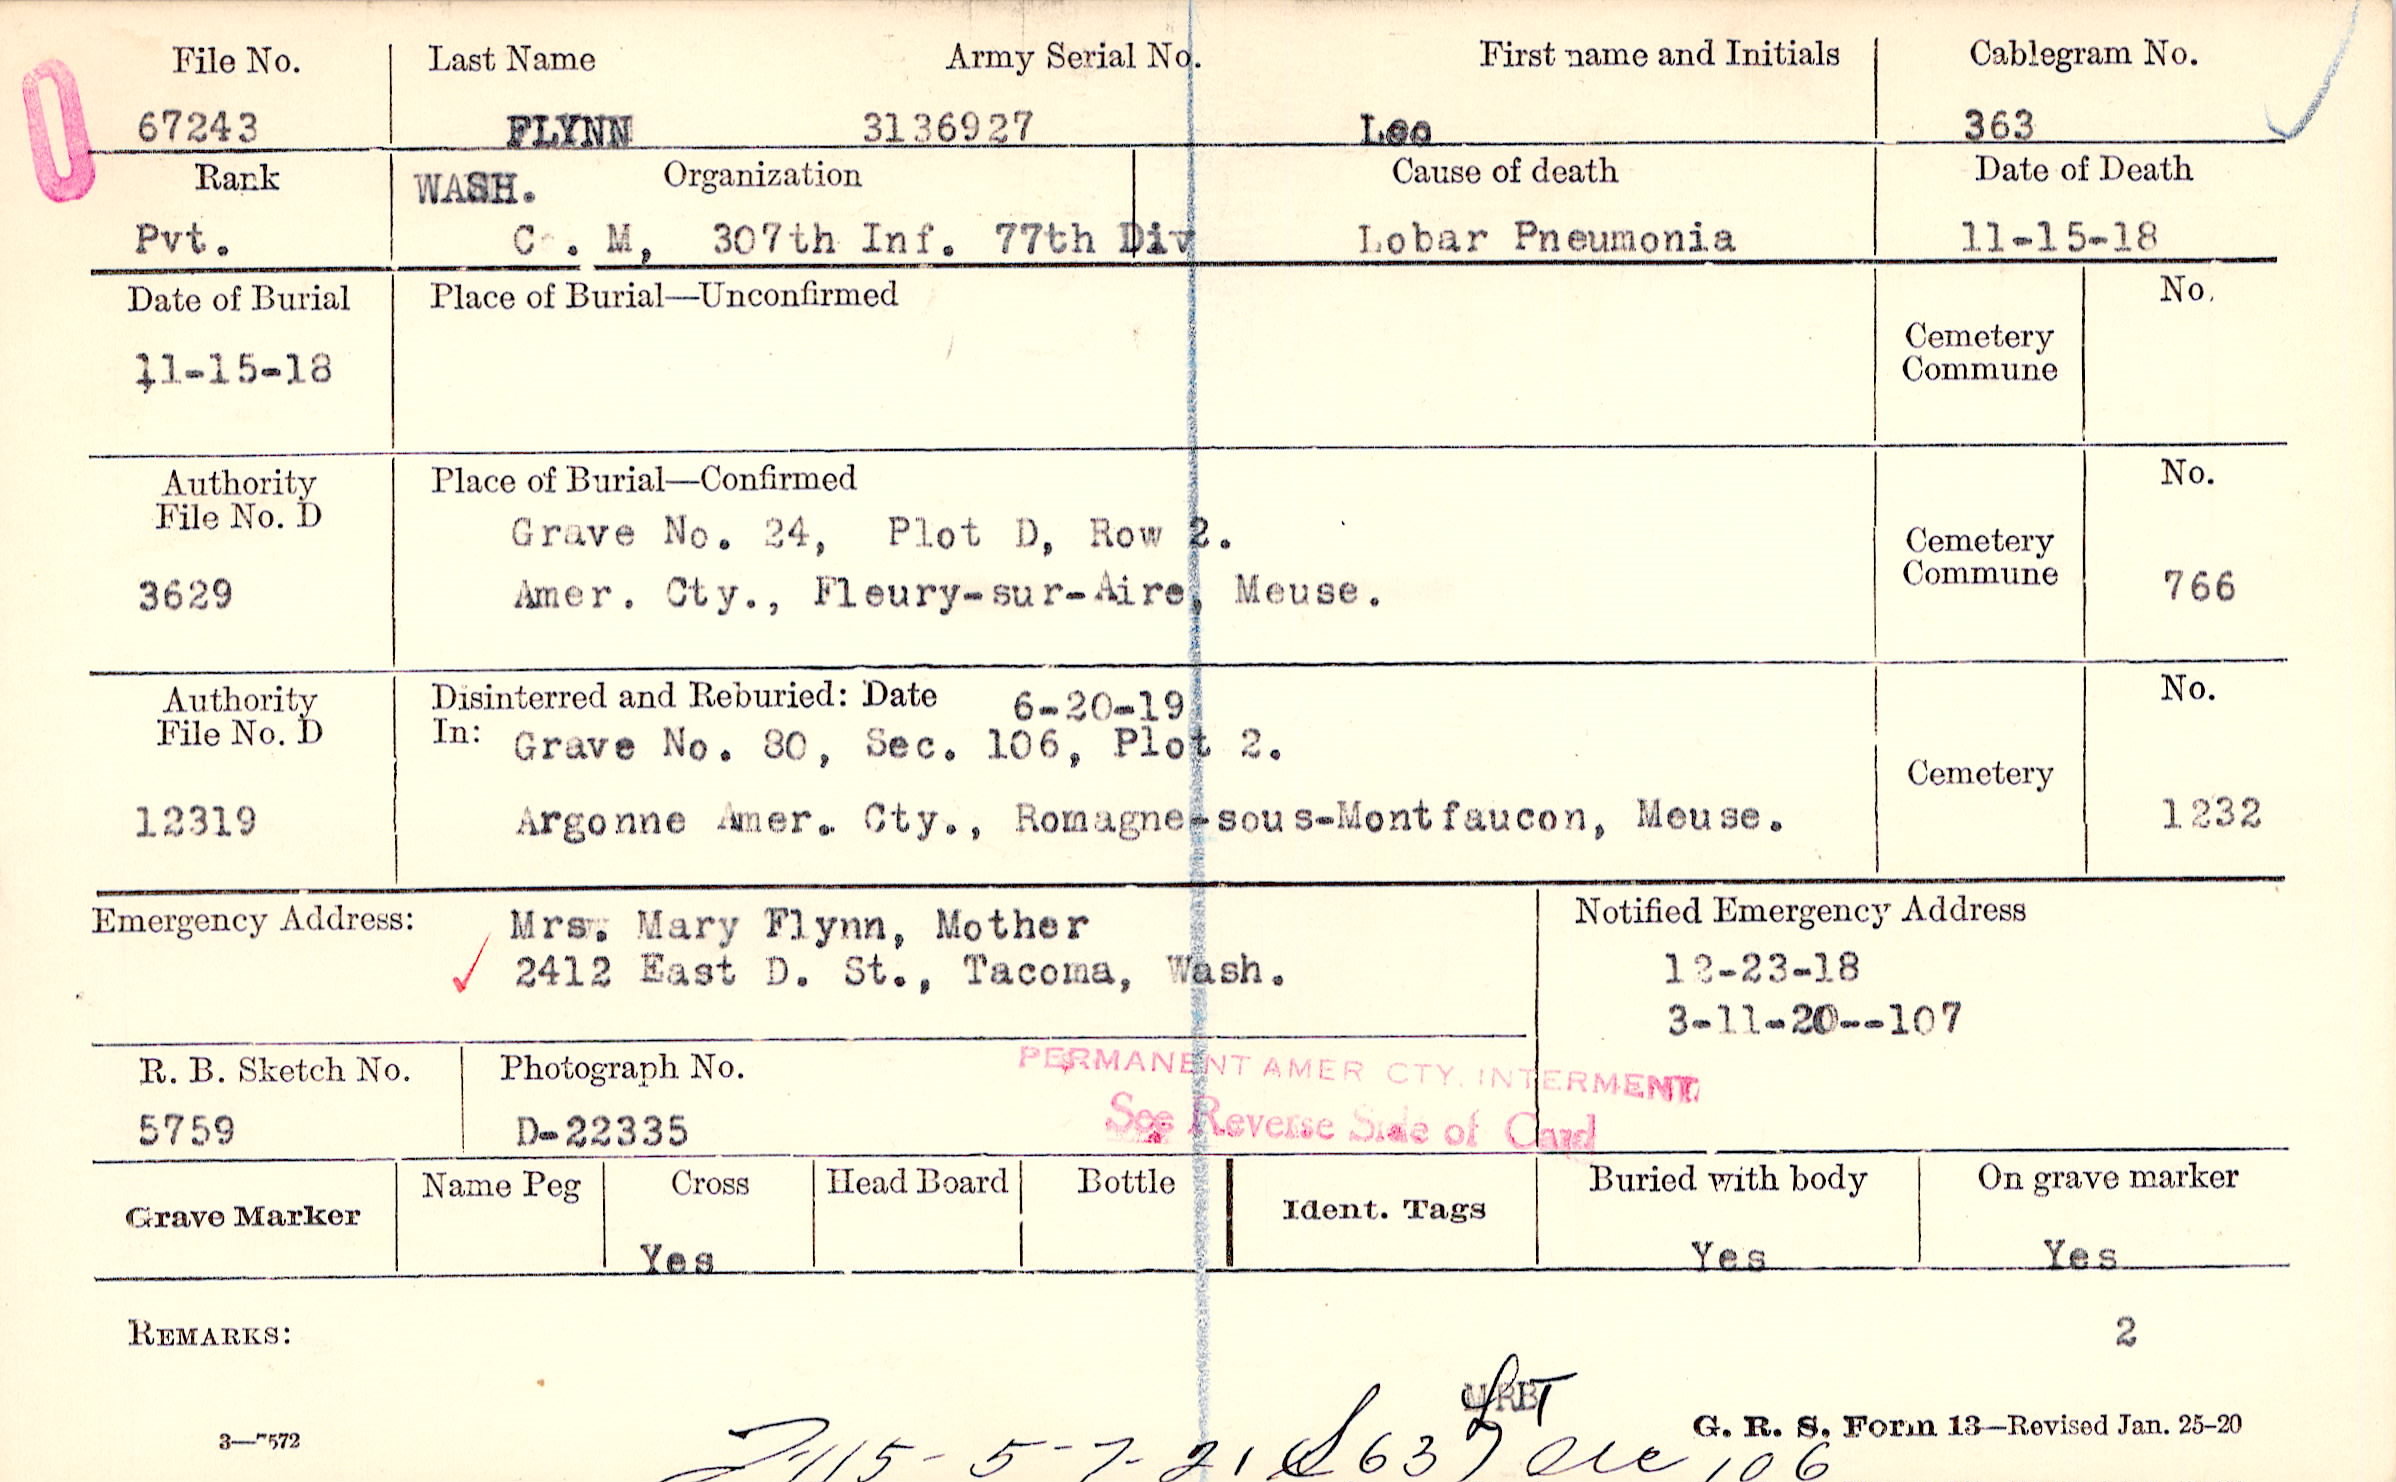 File No. Last Name Army Serial No. First name and Initials Cablegram No.
67243 FLYNN 3136927 Leo 363
Rank WASH. Organization Cause of death Date of Death
Pvt. C . M, 307th Inf. 77th Div Lobar Pneumonia 11-15-18
Date of Burial Place of Burial—Unconfirmed No.
11-15-18 Cemetery
Commune
Authority Place of Burial—Confirmed No.
File No. D Grave No. 24, Plot D, Row 2. Cemetery
3629 Amer. Cty., Fleury-sur-Aire, Meuse. Commune 766
Authority Disinterred and Reburied: Date 6-20-19 No.
File No. D In: Grave No. 80, Sec. 106, Plot 2.
Cemetery
12319 Argonne Amer. Cty., Romagne-sous-Montfaucon, Meuse. 1232
Emergency Address: Mrs. Mary Flynn, Mother Notified Emergency Address
2412 East D. St., Tacoma, Wash. 12-23-18
3-11-20--107
R. B. Sketch No. Photograph No. PERMANENT AMER CTY. INTERMENT
5759 D-22335 See Reverse Side of Card
Grave Marker Name Peg Cross Head Board Bottle Ident. Tags Buried with body On grave marker
Yes Yes Yes
REMARKS: 2
MRB
3—7572 G. R. S. Form 13—Revised Jan. 25-20
5-7-21 106